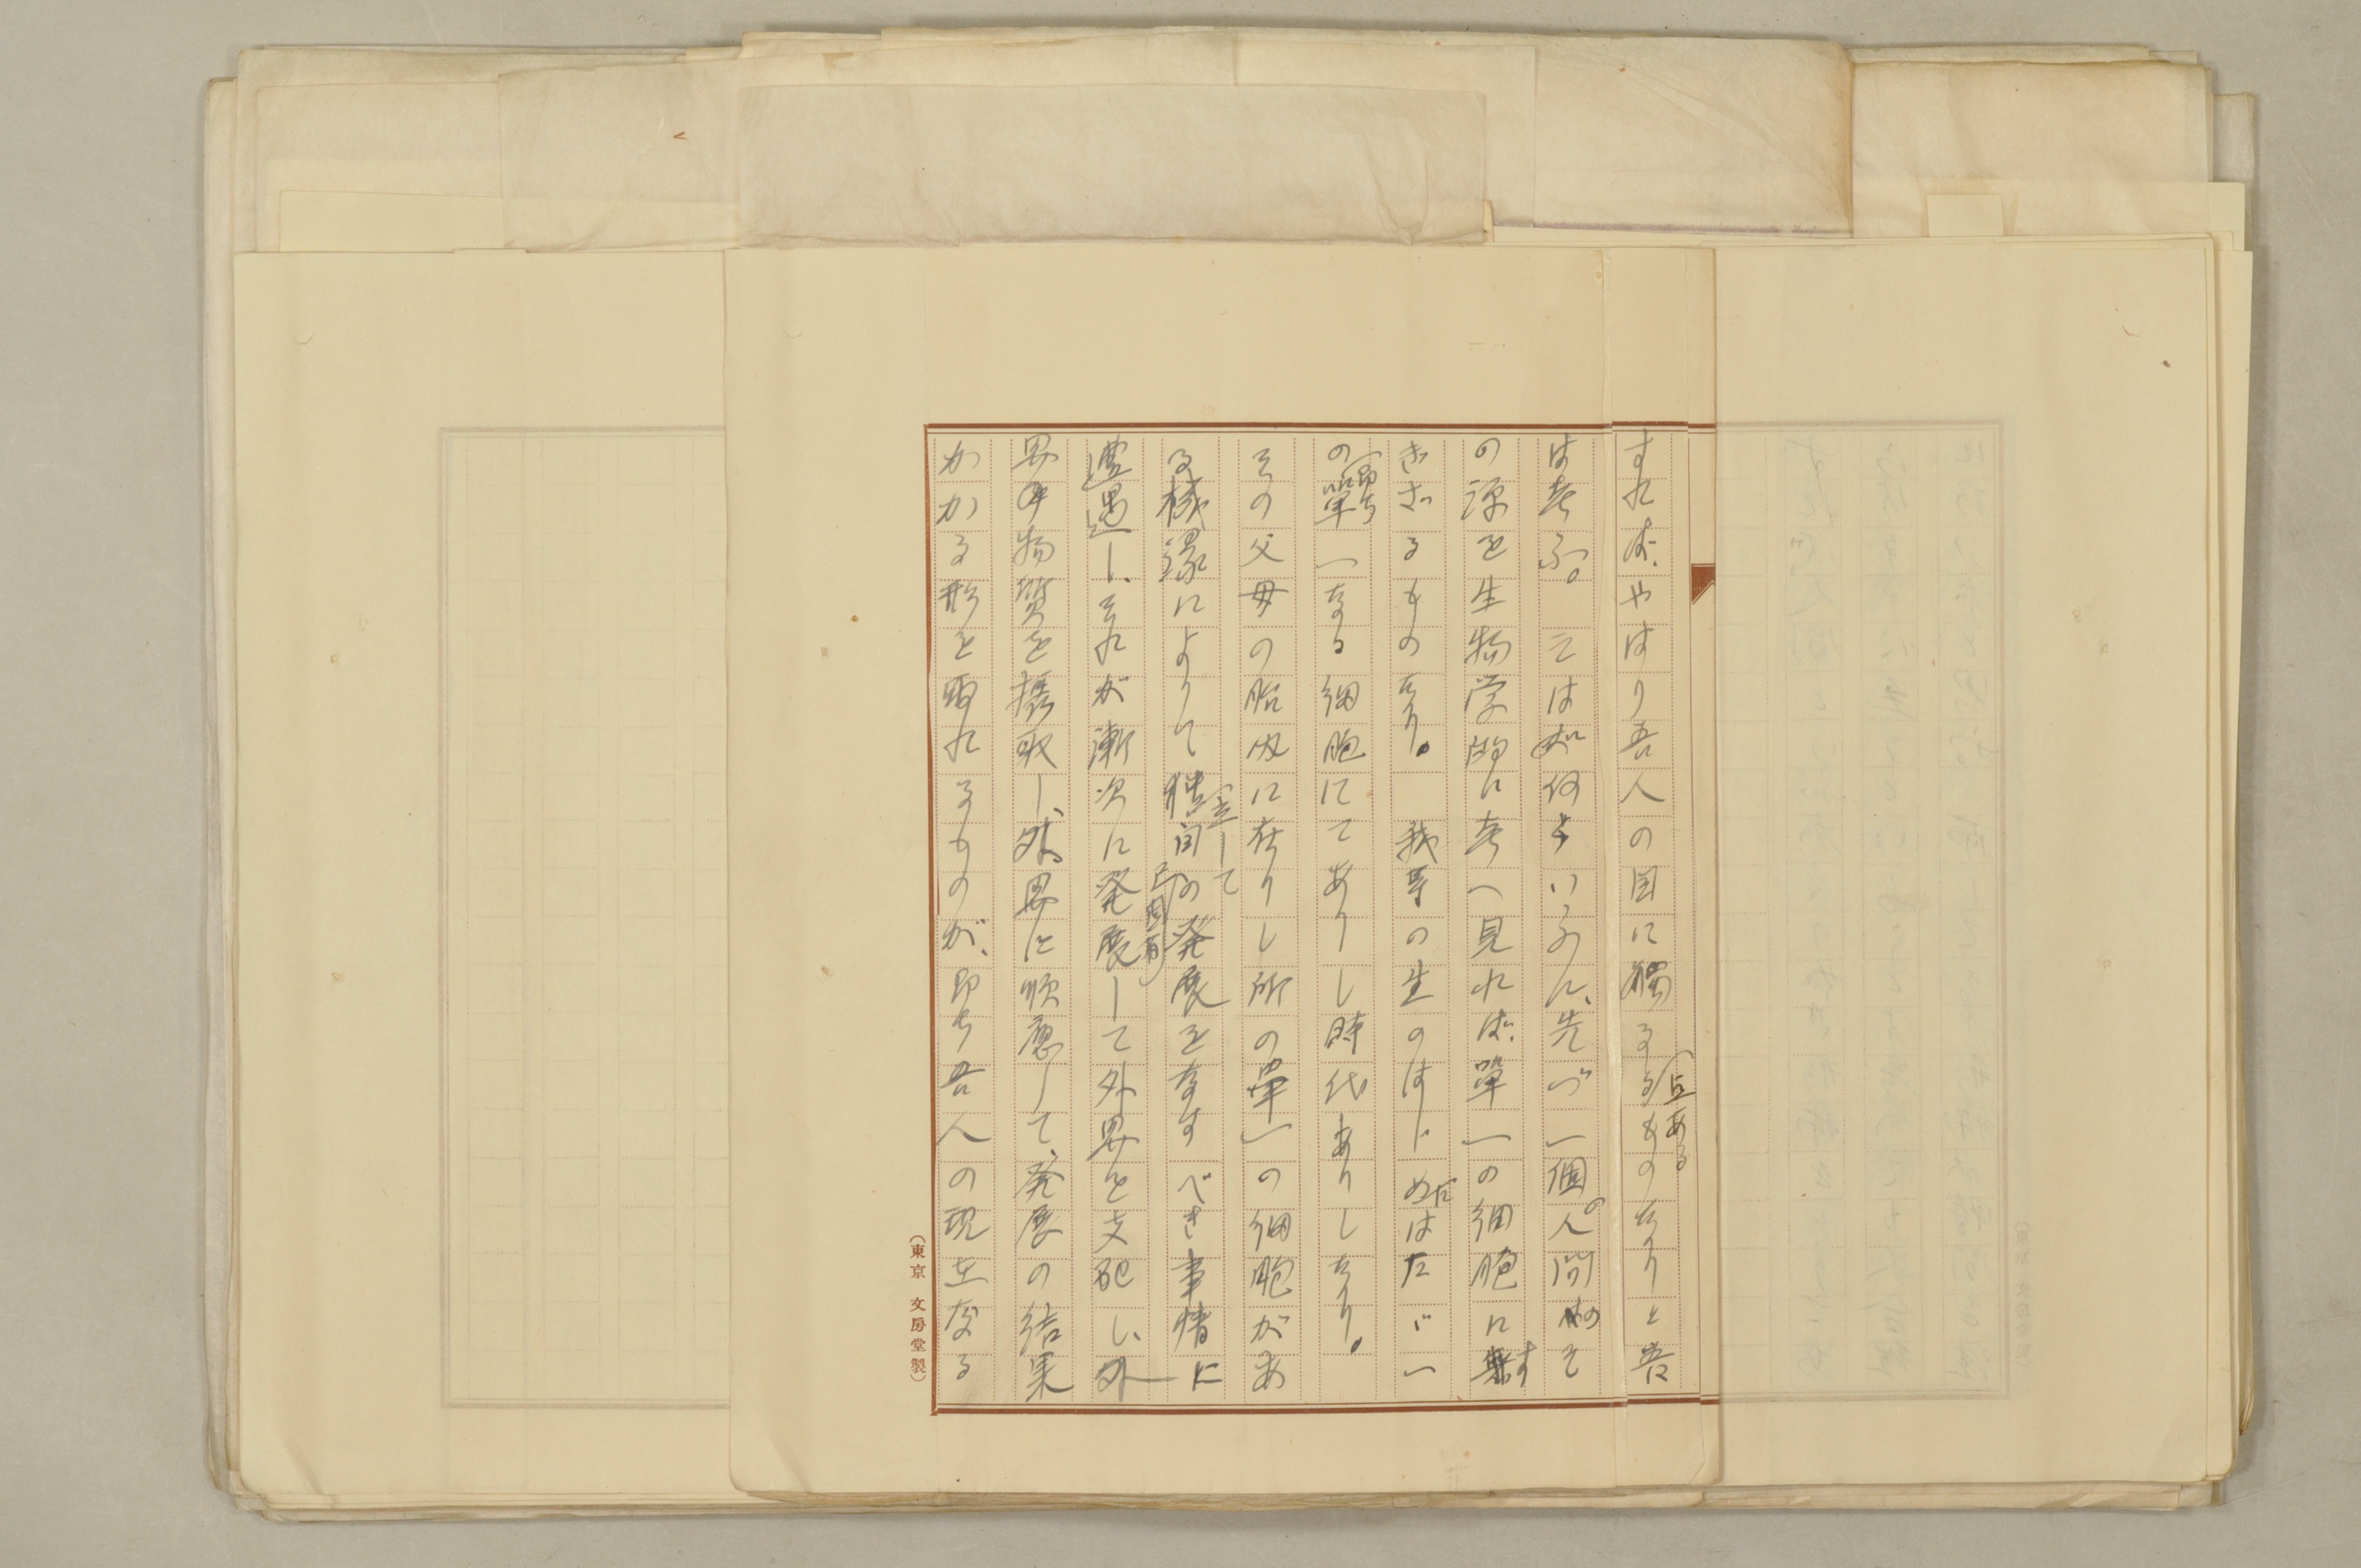 すれば、やはり吾人の因に獨るるもの丘あるなりと吾
は考ふ。そは如何といふに、先づ一個の人間のそ
の源を生物学的に考へ見れば、單一の細胞にす
ぎざるものなり。我等の生のはじめにはたゞ一
の即ち單一なる細胞にてありし時代ありしなり。
その父母の胎内に在りし所の單一の細胞があ
る機縁によりて発展をなすべき事情に
遭遇し、それが漸次に発展して外界を支配し、外
界の物質を摂取し、外界に順應して、発展の結果
かかる形を取れるものが、即ち吾人の現在なる
(東京 文房堂製)